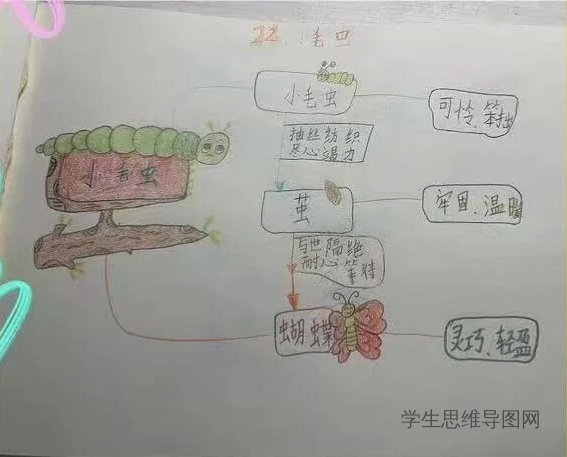 22.小毛虫
小毛虫
小毛虫
可怜、笨拙
抽丝纺织
尽心竭力
茧
牢固、温暖
与世隔绝
耐心等待
蝴蝶
灵巧、轻盈
学生思维导图网